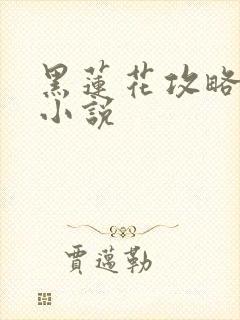 黑蓮花攻略
小説
賈邁勒